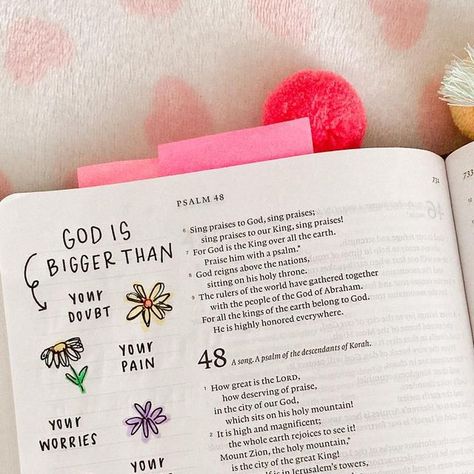 PSALM 48
731
733
GOD IS
BIGGER THAN
YOUR
DOUBT
YOUR
PAIN
YOUR
WORRIES
YOUR
6 Sing praises to God, sing praises;
sing praises to our King, sing praises!
7 For God is the King over all the earth.
Praise him with a psalm.
8 God reigns above the nations,
sitting on his holy throne.
9 The rulers of the world have gathered together
with the people of the God of Abraham.
For all the kings of the earth belong to God.
He is highly honored everywhere.
48 A song. A psalm of the descendants of Korah.
1 How great is the LORD,
how deserving of praise,
in the city of our God,
which sits on his holy mountain!
2 It is high and magnificent;
the whole earth rejoices to see it!
Mount Zion, the holy mountain,
is the city of the great King!
God himself is in Jerusalem's towers,